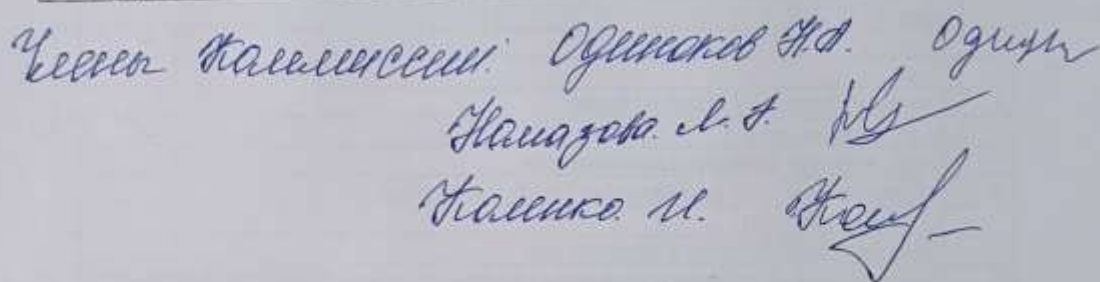 Члены Комиссии: Одиноков Н.А. Один
Намазова. Л. А.
Коленко. И.